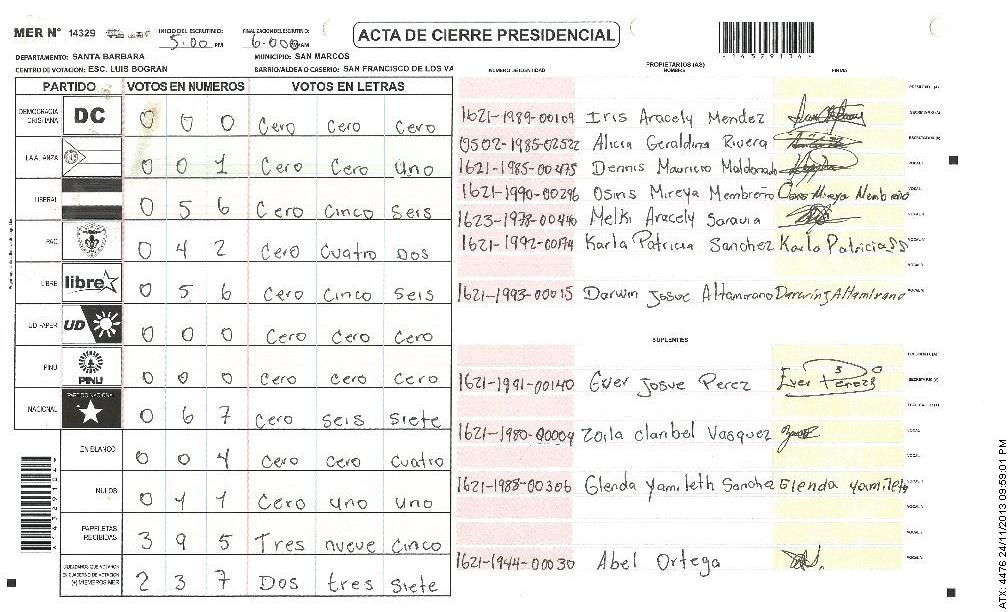 MER N° 14329
INICIO DEL ESCRUTINIO: 5:00 PM
FINALIZACION DEL ESCRUTINIO: 6:00 AM
ACTA DE CIERRE PRESIDENCIAL
DEPARTAMENTO: SANTA BARBARA
MUNICIPIO: SAN MARCOS
CENTRO DE VOTACION: ESC. LUIS BOGRAN
BARRIO/ALDEA O CASERIO: SAN FRANCISCO DE LOS VA
PARTIDO VOTOS EN NUMEROS VOTOS EN LETRAS
DEMOCRACIA CRISTIANA DC 0 0 0 Cero Cero Cero
LA ALIANZA 0 0 1 Cero Cero Uno
LIBERAL 0 5 6 Cero Cinco Seis
PAC 0 4 2 Cero Cuatro Dos
LIBRE libre 0 5 6 Cero Cinco Seis
UD FAPER UD 0 0 0 Cero Cero Cero
PINU PINU 0 0 0 Cero Cero Cero
NACIONAL PARTIDO NACIONAL 0 6 7 Cero Seis Siete
EN BLANCO 0 0 4 Cero Cero Cuatro
NULOS 0 1 1 Cero uno uno
PAPELETAS RECIBIDAS 3 9 5 Tres nueve Cinco
CIUDADANOS QUE VOTARON EN CUADERNO DE VOTACION (+) MIEMBROS MER 2 3 7 Dos tres Siete
NUMERO DE IDENTIDAD PROPIETARIOS (AS) NOMBRE FIRMA
PRESIDENTE (A)
1621-1989-00109 Iris Aracely Mendez SECRETARIO (A)
0502-1985-02522 Alicia Geraldina Rivera
1621-1985-00475 Dennis Mauricio Maldonado VOCAL I
1621-1990-00296 Osiris Mireya Membreño
1623-1978-00440 Melki Aracely Saravia
1621-1992-00174 Karla Patricia Sanchez Karla Patricia S S
1621-1993-00015 Darwin Josue Altamirano Darwing Altamirano
SUPLENTES
PRESIDENTE (A)
1621-1991-00140 Ever Josue Perez Ever Perez SECRETARIO (A)
1621-1980-00004 Zoila Claribel Vasquez VOCAL
1621-1988-00306 Glenda Yamileth Sanchez Glenda Yamileth
1621-1944-00030 Abel Ortega
ATX: 4476 24/11/2013 09:59:01 PM